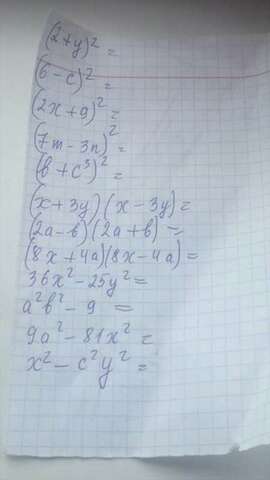 (2+y)² =
(6-c)² =
(2x+9)² =
(7m-3n)² =
(b+c³)² =
(x+3y)(x-3y)=
(2a-b)(2a+b) =
(8x+4a)(8x-4a)=
36x²-25y²=
a²b²-9 =
9a²-81x² =
x²-c²y² =